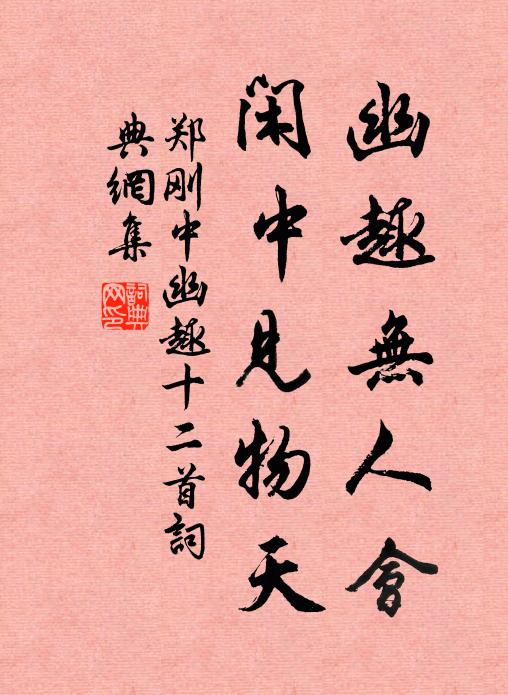 幽趣無人會
閑中見物天
郑刚中幽趣十二首詞
典網集
詞典网印